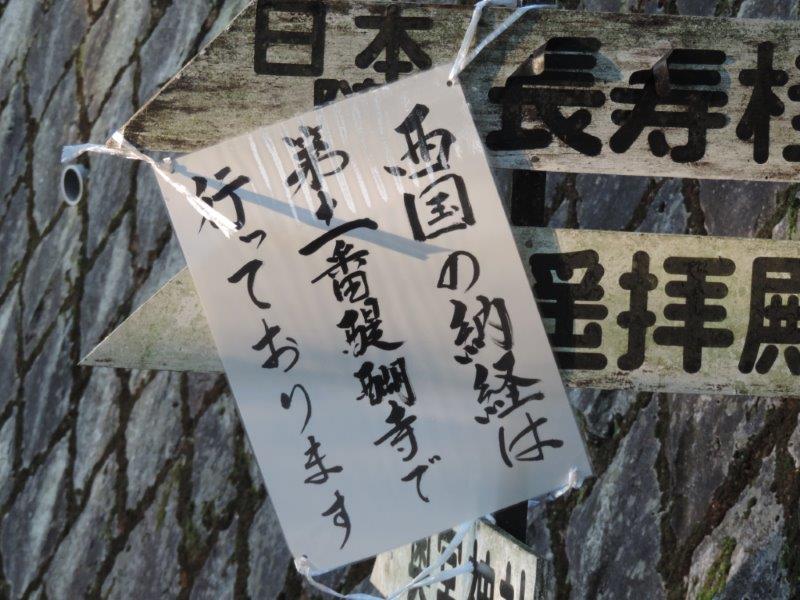 西国の納経は
第十一番醍醐寺で
行っております
日本
長寿桂
遥拝殿